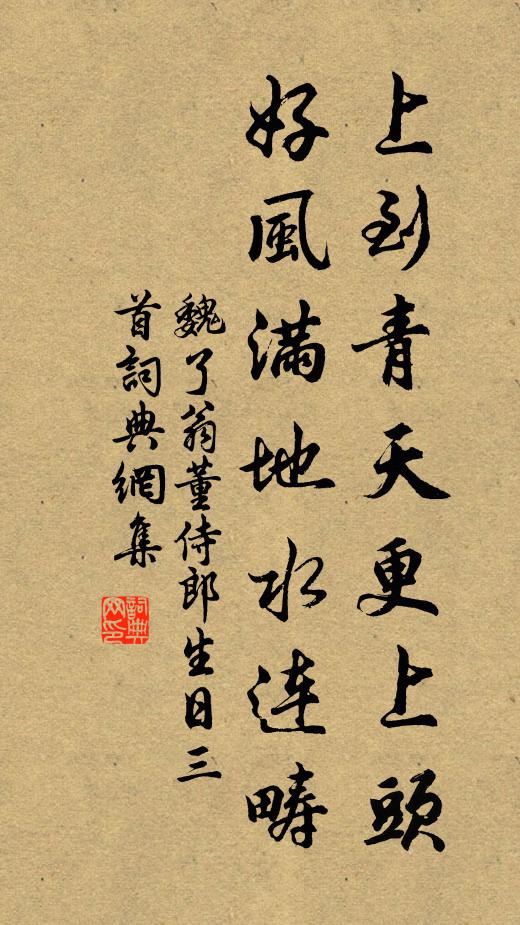 上到青天更上頭
好風滿地水連疇
魏了翁董侍郎生日三
首詞典網集
詞典
网印